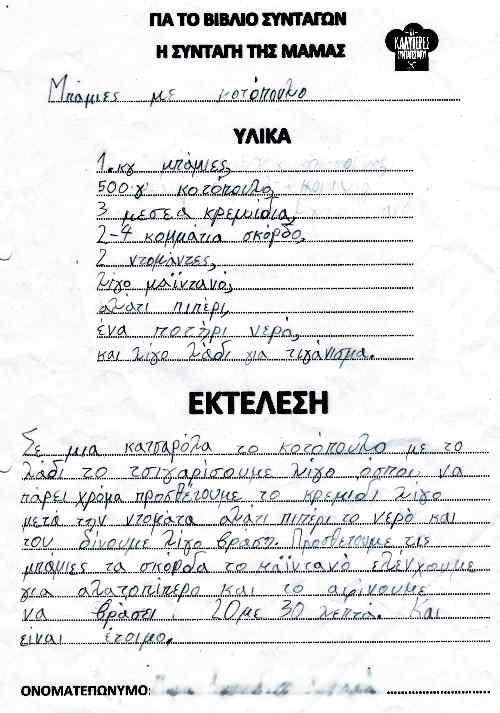 ΓΙΑ ΤΟ ΒΙΒΛΙΟ ΣΥΝΤΑΓΩΝ
Η ΣΥΝΤΑΓΗ ΤΗΣ ΜΑΜΑΣ
ΟΙ ΚΑΛΥΤΕΡΕΣ ΣΥΝΤΑΓΕΣ ΜΟΥ
Μπάμιες με κοτόπουλο
ΥΛΙΚΑ
1.κγ μπάμιες,
500γ κοτόπουλο,
3 μεσεα κρεμιδια,
2-4 κομμάτια σκόρδο,
2 ντομάντες,
λίγο μαϊντανό,
αλάτι πιπέρι,
ένα ποτήρι νερό,
και λίγο λάδι για τιγάνισμα.
ΕΚΤΕΛΕΣΗ
Σε μια κατσαρόλα το κοτόπουλο με το
λάδι το τσιγαρίσουμε λίγο όσπου να
πάρει χρόμα προσθέτουμε το κρεμιδι λίγο
μετα την ντοματα αλάτι πιπέρι το νερό και
του δίνουμε λίγο βραση. Προσθετουμε τις
μπάμιες τα σκόρδα το μαϊντανό ελένχουμε
για αλατοπίπερο και το αφίνουμε
να βράσει 20με 30 λεπτά. Και
είναι έτοιμο.
ΟΝΟΜΑΤΕΠΩΝΥΜΟ: